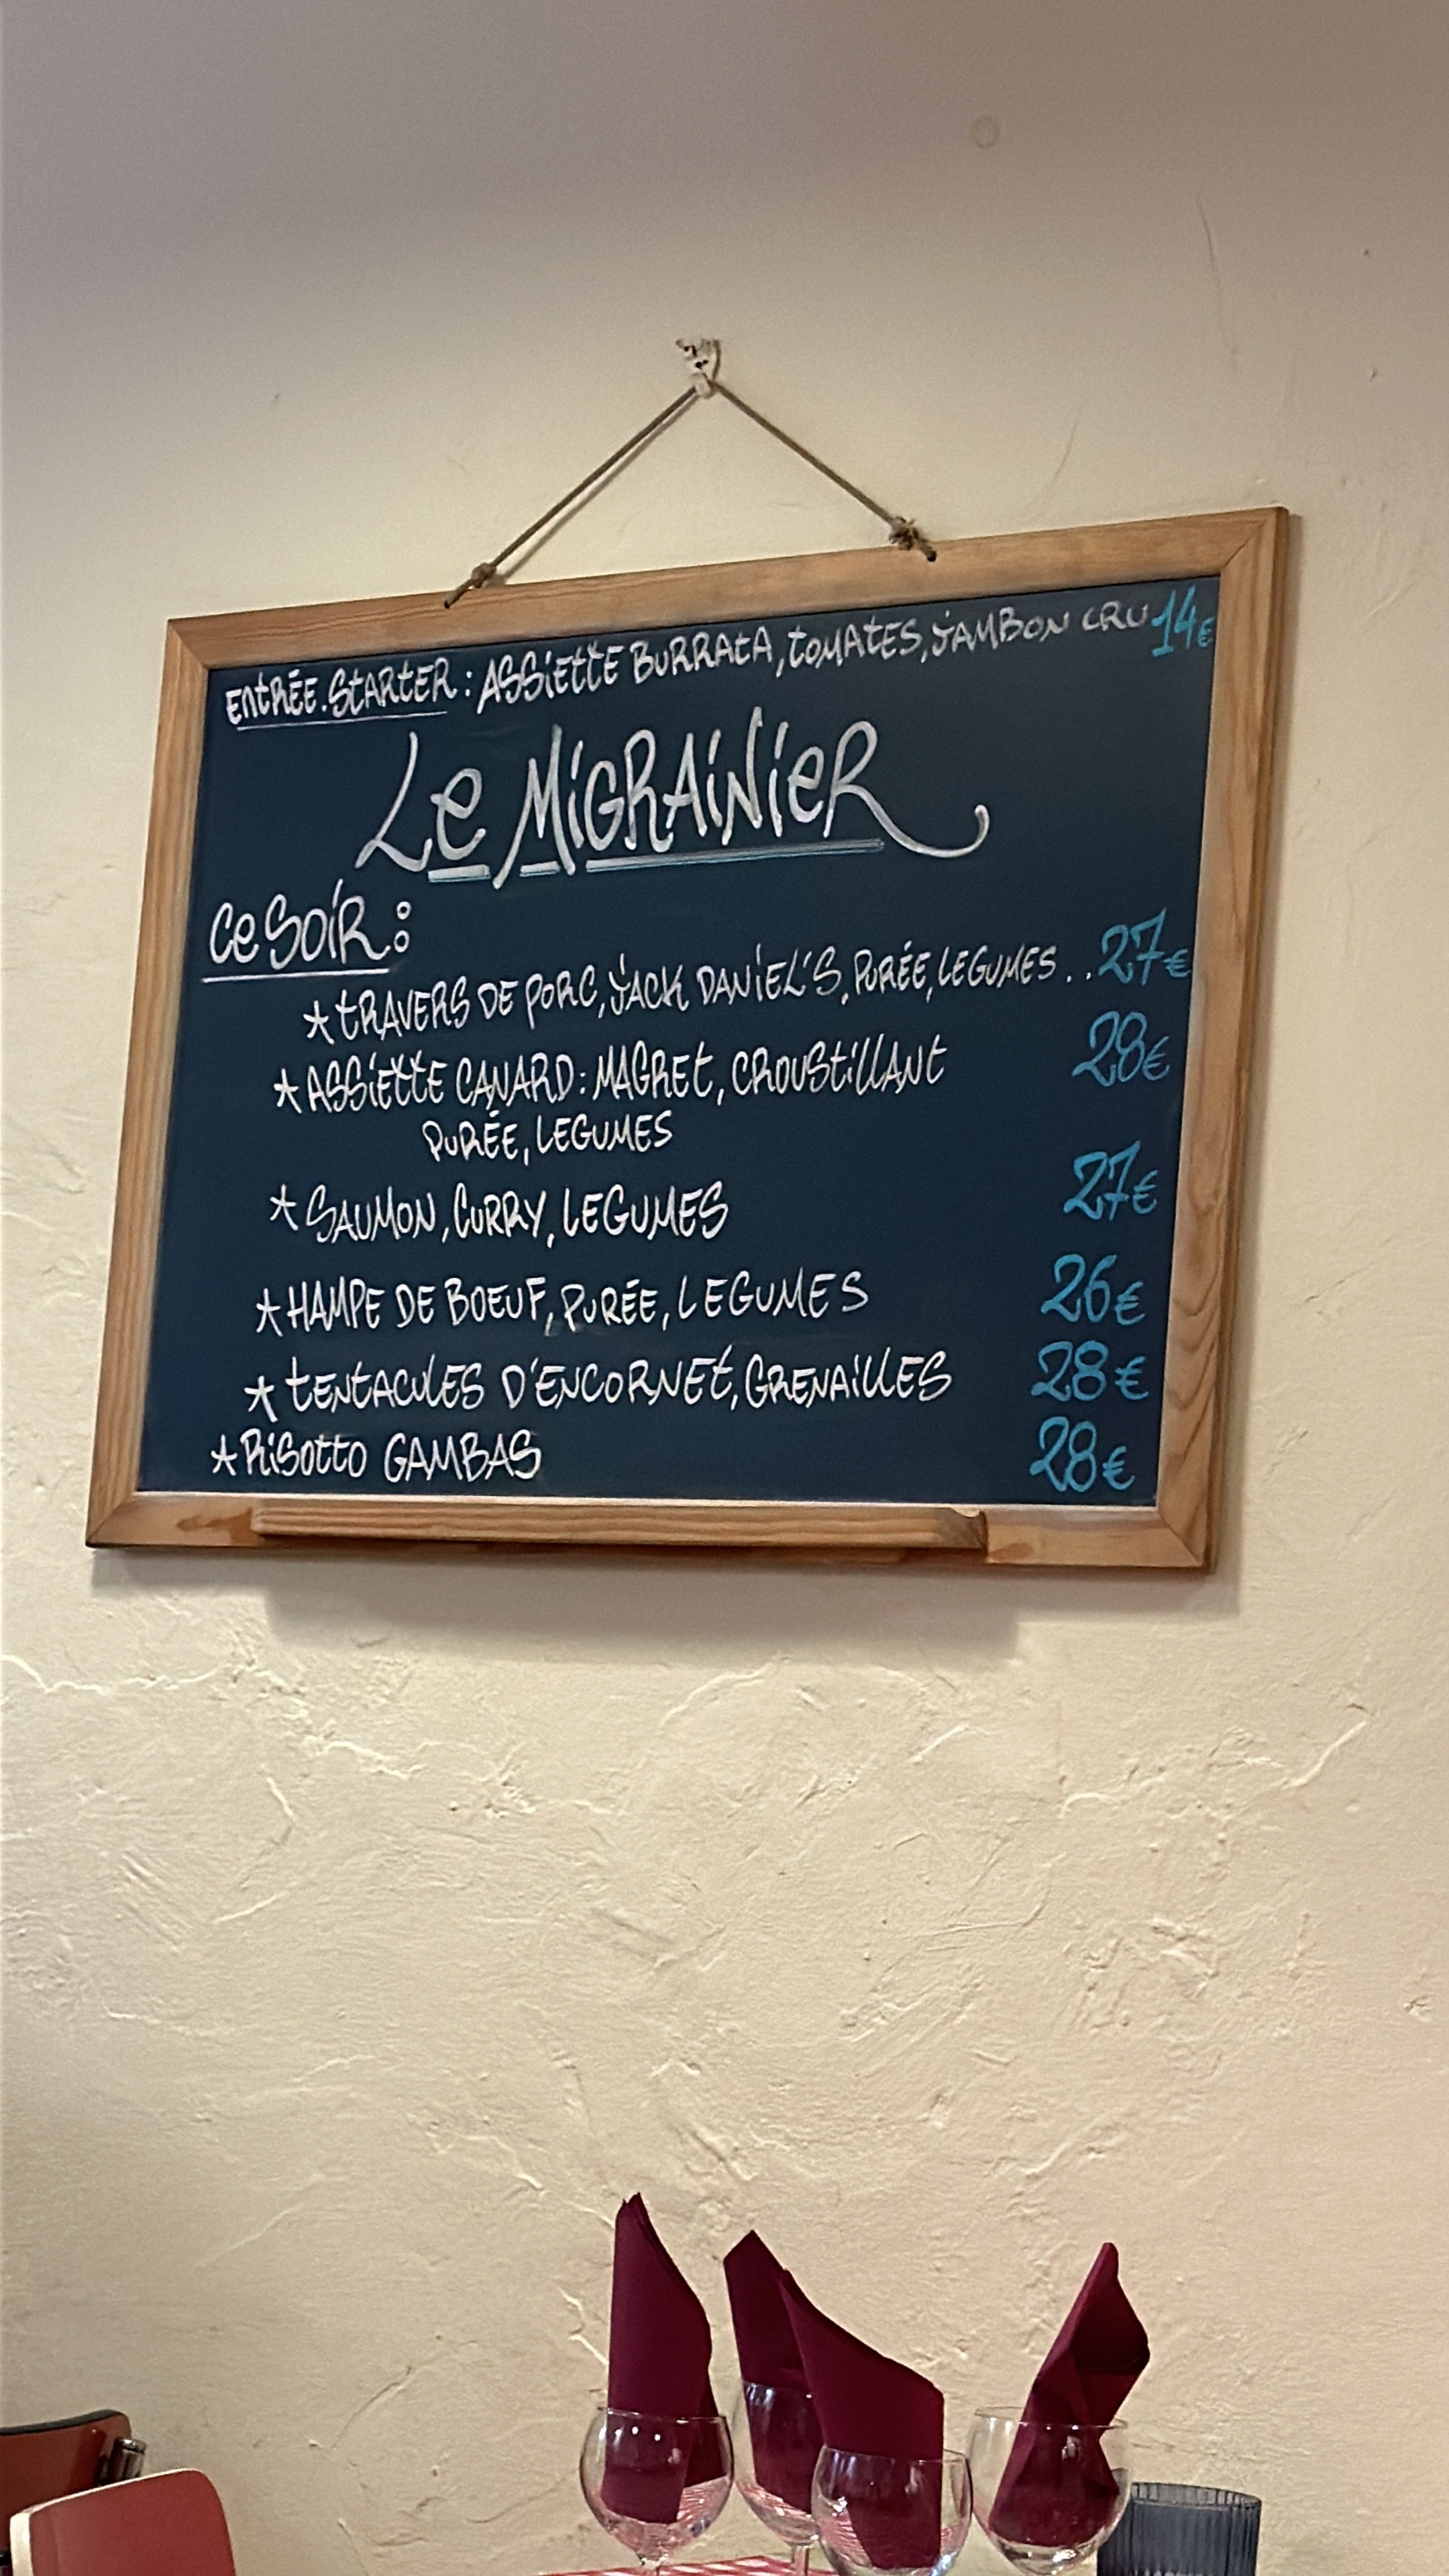 ENTRÉE.STARTER : ASSIETTE BURRATA, TOMATES, JAMBON CRU 14€
LE MIGRAINIER
CE SOIR :
* TRAVERS DE PORC, JACK DANIEL'S, PURÉE, LEGUMES .. 27€
* ASSIETTE CANARD : MAGRET, CROUSTILLANT 28€
PURÉE, LEGUMES
* SAUMON, CURRY, LEGUMES 27€
* HAMPE DE BOEUF, PURÉE, LEGUMES 26€
* TENTACULES D'ENCORNET, GRENAILLES 28€
* RISOTTO GAMBAS 28€